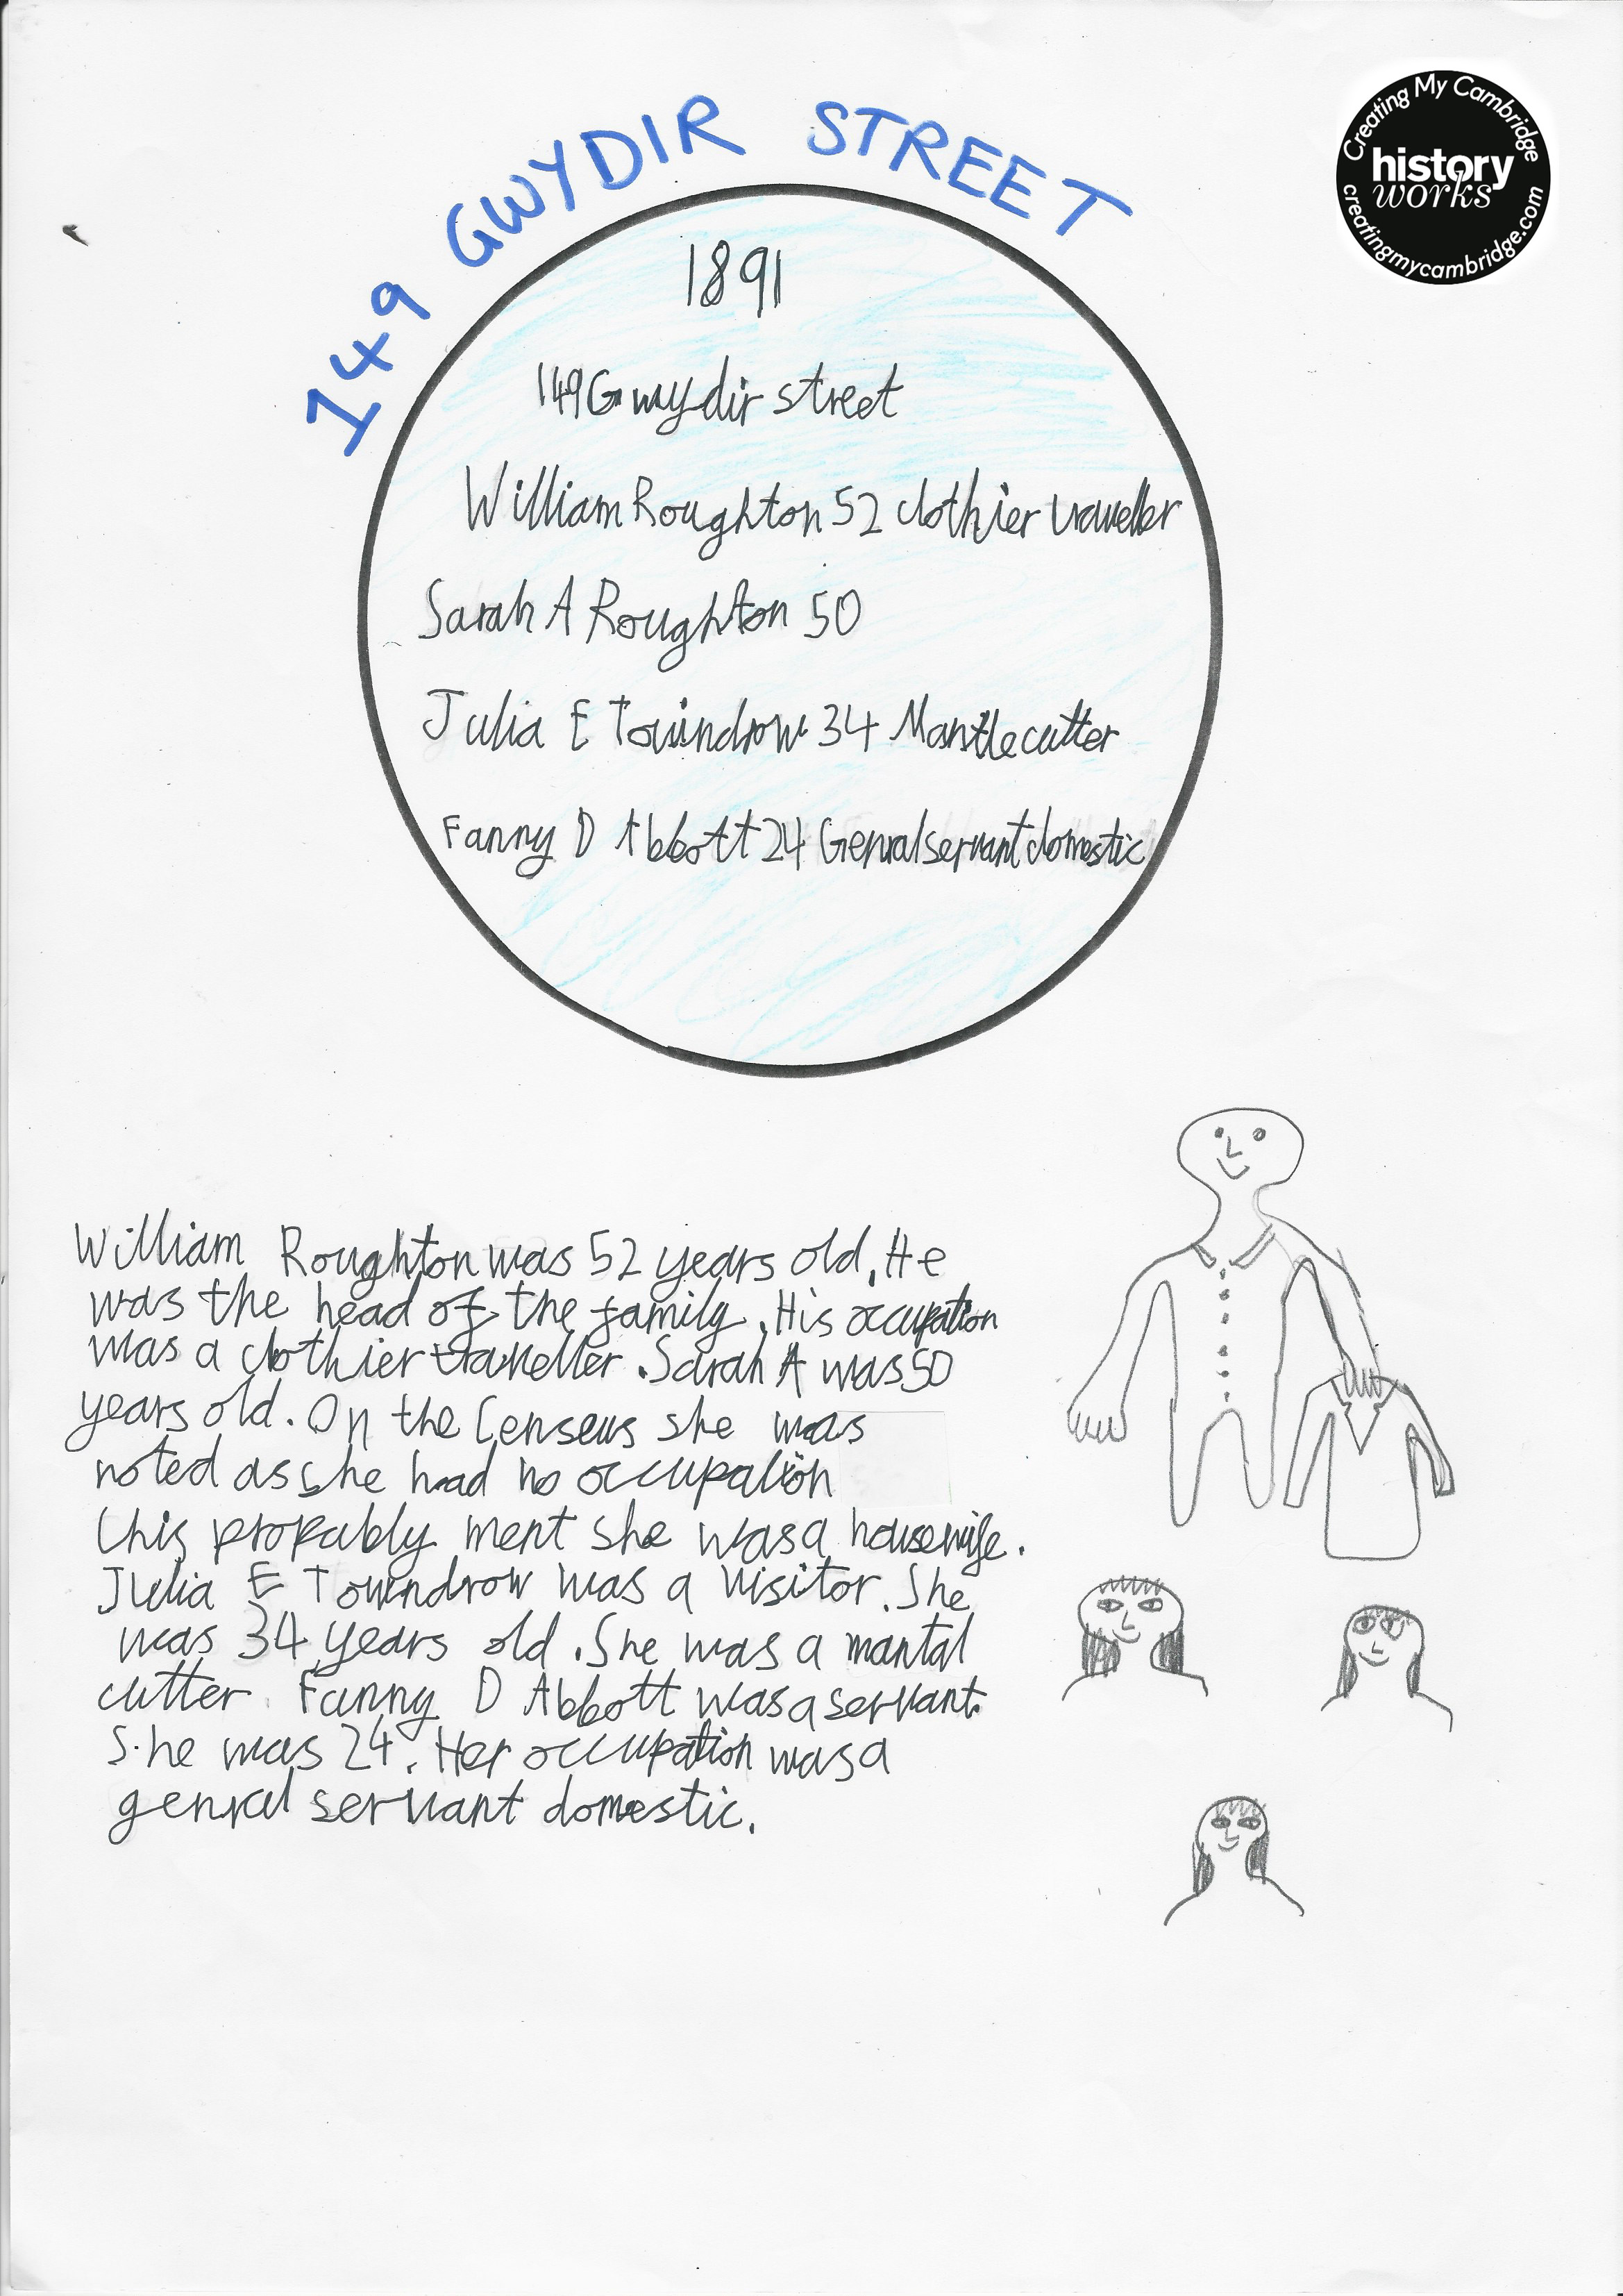 149 GWYDIR STREET
Creating My Cambridge
history
works
creatingmycambridge.com
1891
149 Gwydir street
William Roughton 52 clothier traveller
Sarah A Roughton 50
Julia E Towndrow 34 Mantle cutter
Fanny D Abbott 24 Genral servant domestic
William Roughton was 52 years old. He
was the head of the family. His occupation
was a clothier traveller. Sarah A was 50
years old. On the Censeus she was
noted as she had no occupation
this propably ment she was a housewife.
Julia E Towndrow was a visitor. She
was 34 years old. She was a mantal
cutter. Fanny D Abbott was a servant.
She was 24. Her occupation was a
genral servant domestic.